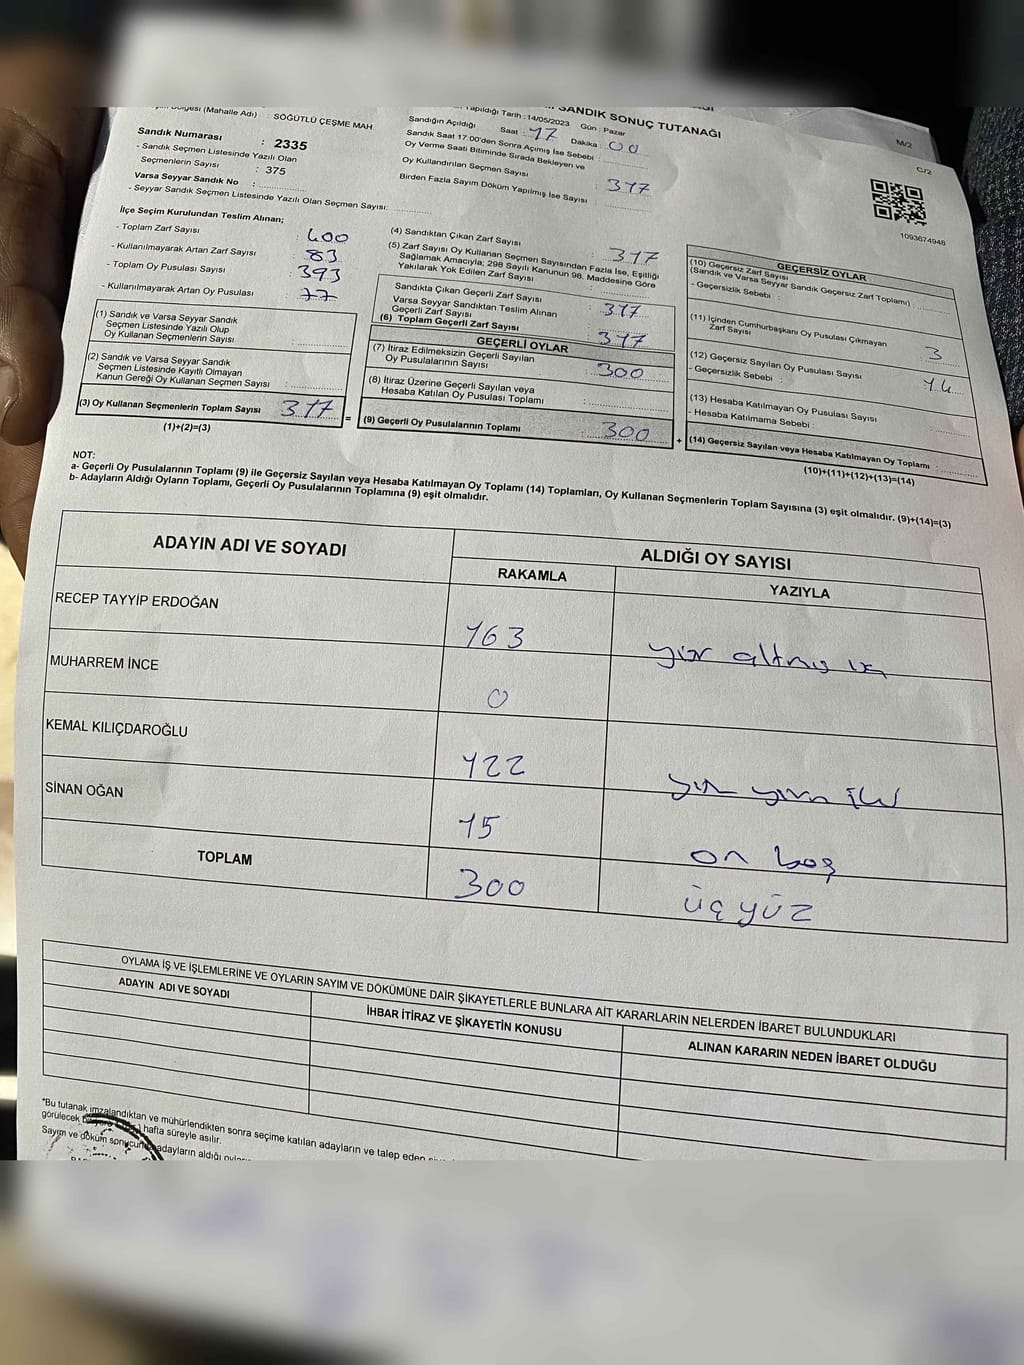 SANDIK SONUÇ TUTANAĞI
(Mahalle Adı) : SÖĞÜTLÜ ÇEŞME MAH
Sandık Numarası : 2335
- Sandık Seçmen Listesinde Yazılı Olan
Seçmenlerin Sayısı : 375
Varsa Seyyar Sandık No :
- Seyyar Sandık Seçmen Listesinde Yazılı Olan Seçmen Sayısı:
Yapıldığı Tarih :14/05/2023 Gün : Pazar
Sandığın Açıldığı Saat : 17 Dakika : 00
Sandık Saat 17.00'den Sonra Açımış İse Sebebi :
Oy Verme Saati Bitiminde Sırada Bekleyen ve
Oy Kullandırılan Seçmen Sayısı : 317
Birden Fazla Sayım Döküm Yapılmış İse Sayısı :
M/2
C/2
1093674948
İlçe Seçim Kurulundan Teslim Alınan;
- Toplam Zarf Sayısı : 400
- Kullanılmayarak Artan Zarf Sayısı : 83
- Toplam Oy Pusulası Sayısı : 393
- Kullanılmayarak Artan Oy Pusulası : 77
(1) Sandık ve Varsa Seyyar Sandık
Seçmen Listesinde Yazılı Olup
Oy Kullanan Seçmenlerin Sayısı :
(2) Sandık ve Varsa Seyyar Sandık
Seçmen Listesinde Kayıtlı Olmayan
Kanun Gereği Oy Kullanan Seçmen Sayısı :
(3) Oy Kullanan Seçmenlerin Toplam Sayısı : 317
(1)+(2)=(3)
=
(4) Sandıktan Çıkan Zarf Sayısı : 317
(5) Zarf Sayısı Oy Kullanan Seçmen Sayısından Fazla İse, Eşitliği
Sağlamak Amacıyla; 298 Sayılı Kanunun 98. Maddesine Göre
Yakılarak Yok Edilen Zarf Sayısı :
Sandıkta Çıkan Geçerli Zarf Sayısı : 317
Varsa Seyyar Sandıktan Teslim Alınan
Geçerli Zarf Sayısı :
(6) Toplam Geçerli Zarf Sayısı : 317
GEÇERLİ OYLAR
(7) İtiraz Edilmeksizin Geçerli Sayılan
Oy Pusulalarının Sayısı : 300
(8) İtiraz Üzerine Geçerli Sayılan veya
Hesaba Katılan Oy Pusulası Toplamı :
(9) Geçerli Oy Pusulalarının Toplamı : 300
+
GEÇERSİZ OYLAR
(10) Geçersiz Zarf Sayısı
(Sandık ve Varsa Seyyar Sandık Geçersiz Zarf Toplamı) :
- Geçersizlik Sebebi :
(11) İçinden Cumhurbaşkanı Oy Pusulası Çıkmayan
Zarf Sayısı : 3
(12) Geçersiz Sayılan Oy Pusulası Sayısı : 14
- Geçersizlik Sebebi :
(13) Hesaba Katılmayan Oy Pusulası Sayısı :
- Hesaba Katılmama Sebebi :
(14) Geçersiz Sayılan veya Hesaba Katılmayan Oy Toplamı :
(10)+(11)+(12)+(13)=(14)
NOT:
a- Geçerli Oy Pusulalarının Toplamı (9) ile Geçersiz Sayılan veya Hesaba Katılmayan Oy Toplamı (14) Toplamları, Oy Kullanan Seçmenlerin Toplam Sayısına (3) eşit olmalıdır. (9)+(14)=(3)
b- Adayların Aldığı Oyların Toplamı, Geçerli Oy Pusulalarının Toplamına (9) eşit olmalıdır.
ADAYIN ADI VE SOYADI
ALDIĞI OY SAYISI
RAKAMLA YAZIYLA
RECEP TAYYİP ERDOĞAN 163 yüz altmış üç
MUHARREM İNCE 0
KEMAL KILIÇDAROĞLU 122 yüz yirmi iki
SİNAN OĞAN 15 on beş
TOPLAM 300 üç yüz
OYLAMA İŞ VE İŞLEMLERİNE VE OYLARIN SAYIM VE DÖKÜMÜNE DAİR ŞİKAYETLERLE BUNLARA AİT KARARLARIN NELERDEN İBARET BULUNDUKLARI
ADAYIN ADI VE SOYADI İHBAR İTİRAZ VE ŞİKAYETİN KONUSU ALINAN KARARIN NEDEN İBARET OLDUĞU
*Bu tutanak imzalandıktan ve mühürlendikten sonra seçime katılan adayların ve talep eden
görülecek hafta süreyle asılır.
Sayım ve döküm sonucunda adayların aldığı